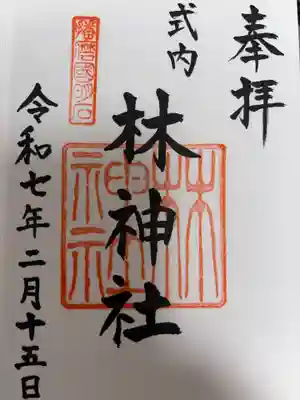 奉拝
式内
林神社
令和七年二月十五日
林神社